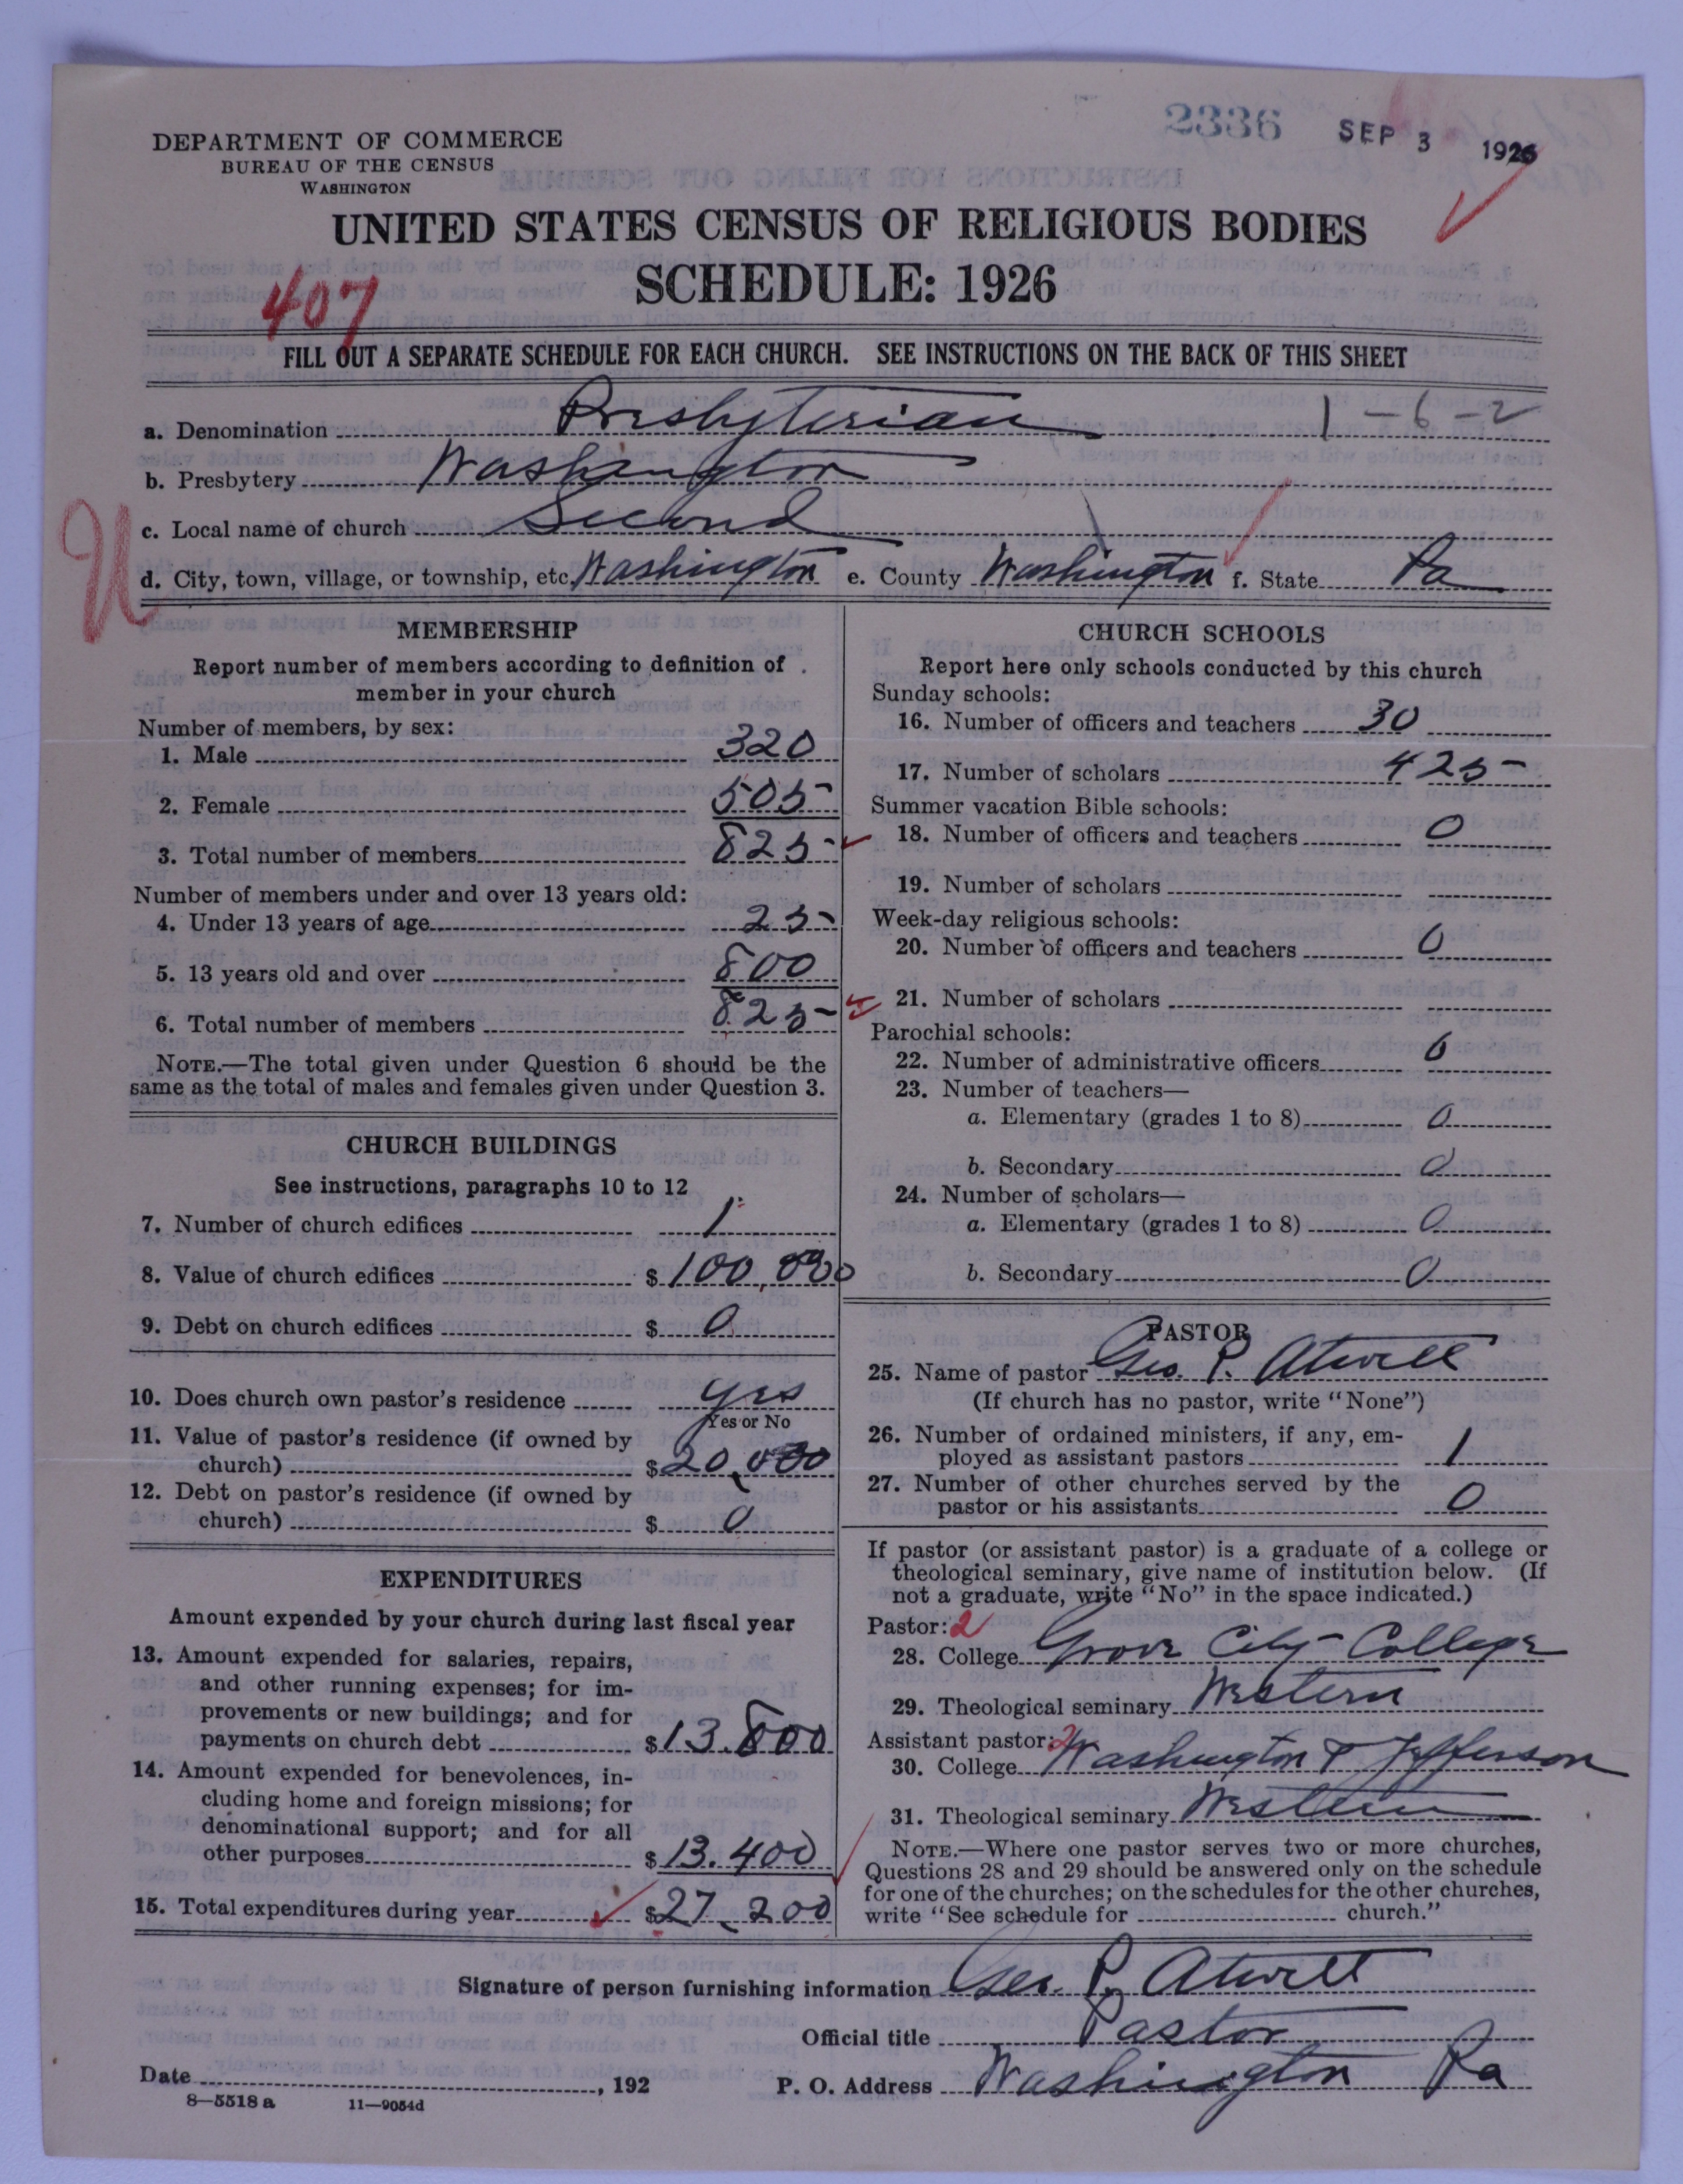 2336 SEP 3 1926
DEPARTMENT OF COMMERCE
BUREAU OF THE CENSUS
WASHINGTON
UNITED STATES CENSUS OF RELIGIOUS BODIES
SCHEDULE: 1926
407
FILL OUT A SEPARATE SCHEDULE FOR EACH CHURCH. SEE INSTRUCTIONS ON THE BACK OF THIS SHEET
a. Denomination Presbyterian 1-6-2
b. Presbytery Washington
c. Local name of church Second
U
d. City, town, village, or township, etc. Washington e. County Washington f. State Pa
MEMBERSHIP
Report number of members according to definition of
member in your church
Number of members, by sex:
1. Male 320
2. Female 505
3. Total number of members 825
Number of members under and over 13 years old:
4. Under 13 years of age 25
5. 13 years old and over 800
6. Total number of members 825
NOTE.—The total given under Question 6 should be the
same as the total of males and females given under Question 3.
CHURCH BUILDINGS
See instructions, paragraphs 10 to 12
7. Number of church edifices 1
8. Value of church edifices $100,000
9. Debt on church edifices $ 0
10. Does church own pastor's residence yes
Yes or No
11. Value of pastor's residence (if owned by
church) $20,000
12. Debt on pastor's residence (if owned by
church) $ 0
EXPENDITURES
Amount expended by your church during last fiscal year
13. Amount expended for salaries, repairs,
and other running expenses; for im-
provements or new buildings; and for
payments on church debt $13.800
14. Amount expended for benevolences, in-
cluding home and foreign missions; for
denominational support; and for all
other purposes $13.400
15. Total expenditures during year $27,200
CHURCH SCHOOLS
Report here only schools conducted by this church
Sunday schools:
16. Number of officers and teachers 30
17. Number of scholars 425
Summer vacation Bible schools:
18. Number of officers and teachers 0
19. Number of scholars
Week-day religious schools:
20. Number of officers and teachers 0
21. Number of scholars
Parochial schools:
22. Number of administrative officers 0
23. Number of teachers—
a. Elementary (grades 1 to 8) 0
b. Secondary 0
24. Number of scholars—
a. Elementary (grades 1 to 8) 0
b. Secondary 0
PASTOR
25. Name of pastor Geo. P. Atwell
(If church has no pastor, write "None")
26. Number of ordained ministers, if any, em-
ployed as assistant pastors 1
27. Number of other churches served by the
pastor or his assistants 0
If pastor (or assistant pastor) is a graduate of a college or
theological seminary, give name of institution below. (If
not a graduate, write "No" in the space indicated.)
Pastor: 2
28. College Grove City College
29. Theological seminary Western
Assistant pastor: 2
30. College Washington & Jefferson
31. Theological seminary Western
NOTE.—Where one pastor serves two or more churches,
Questions 28 and 29 should be answered only on the schedule
for one of the churches; on the schedules for the other churches,
write "See schedule for church."
Signature of person furnishing information Geo. P. Atwell
Official title Pastor
Date , 192 P. O. Address Washington Pa
8—5518 a 11—9054d